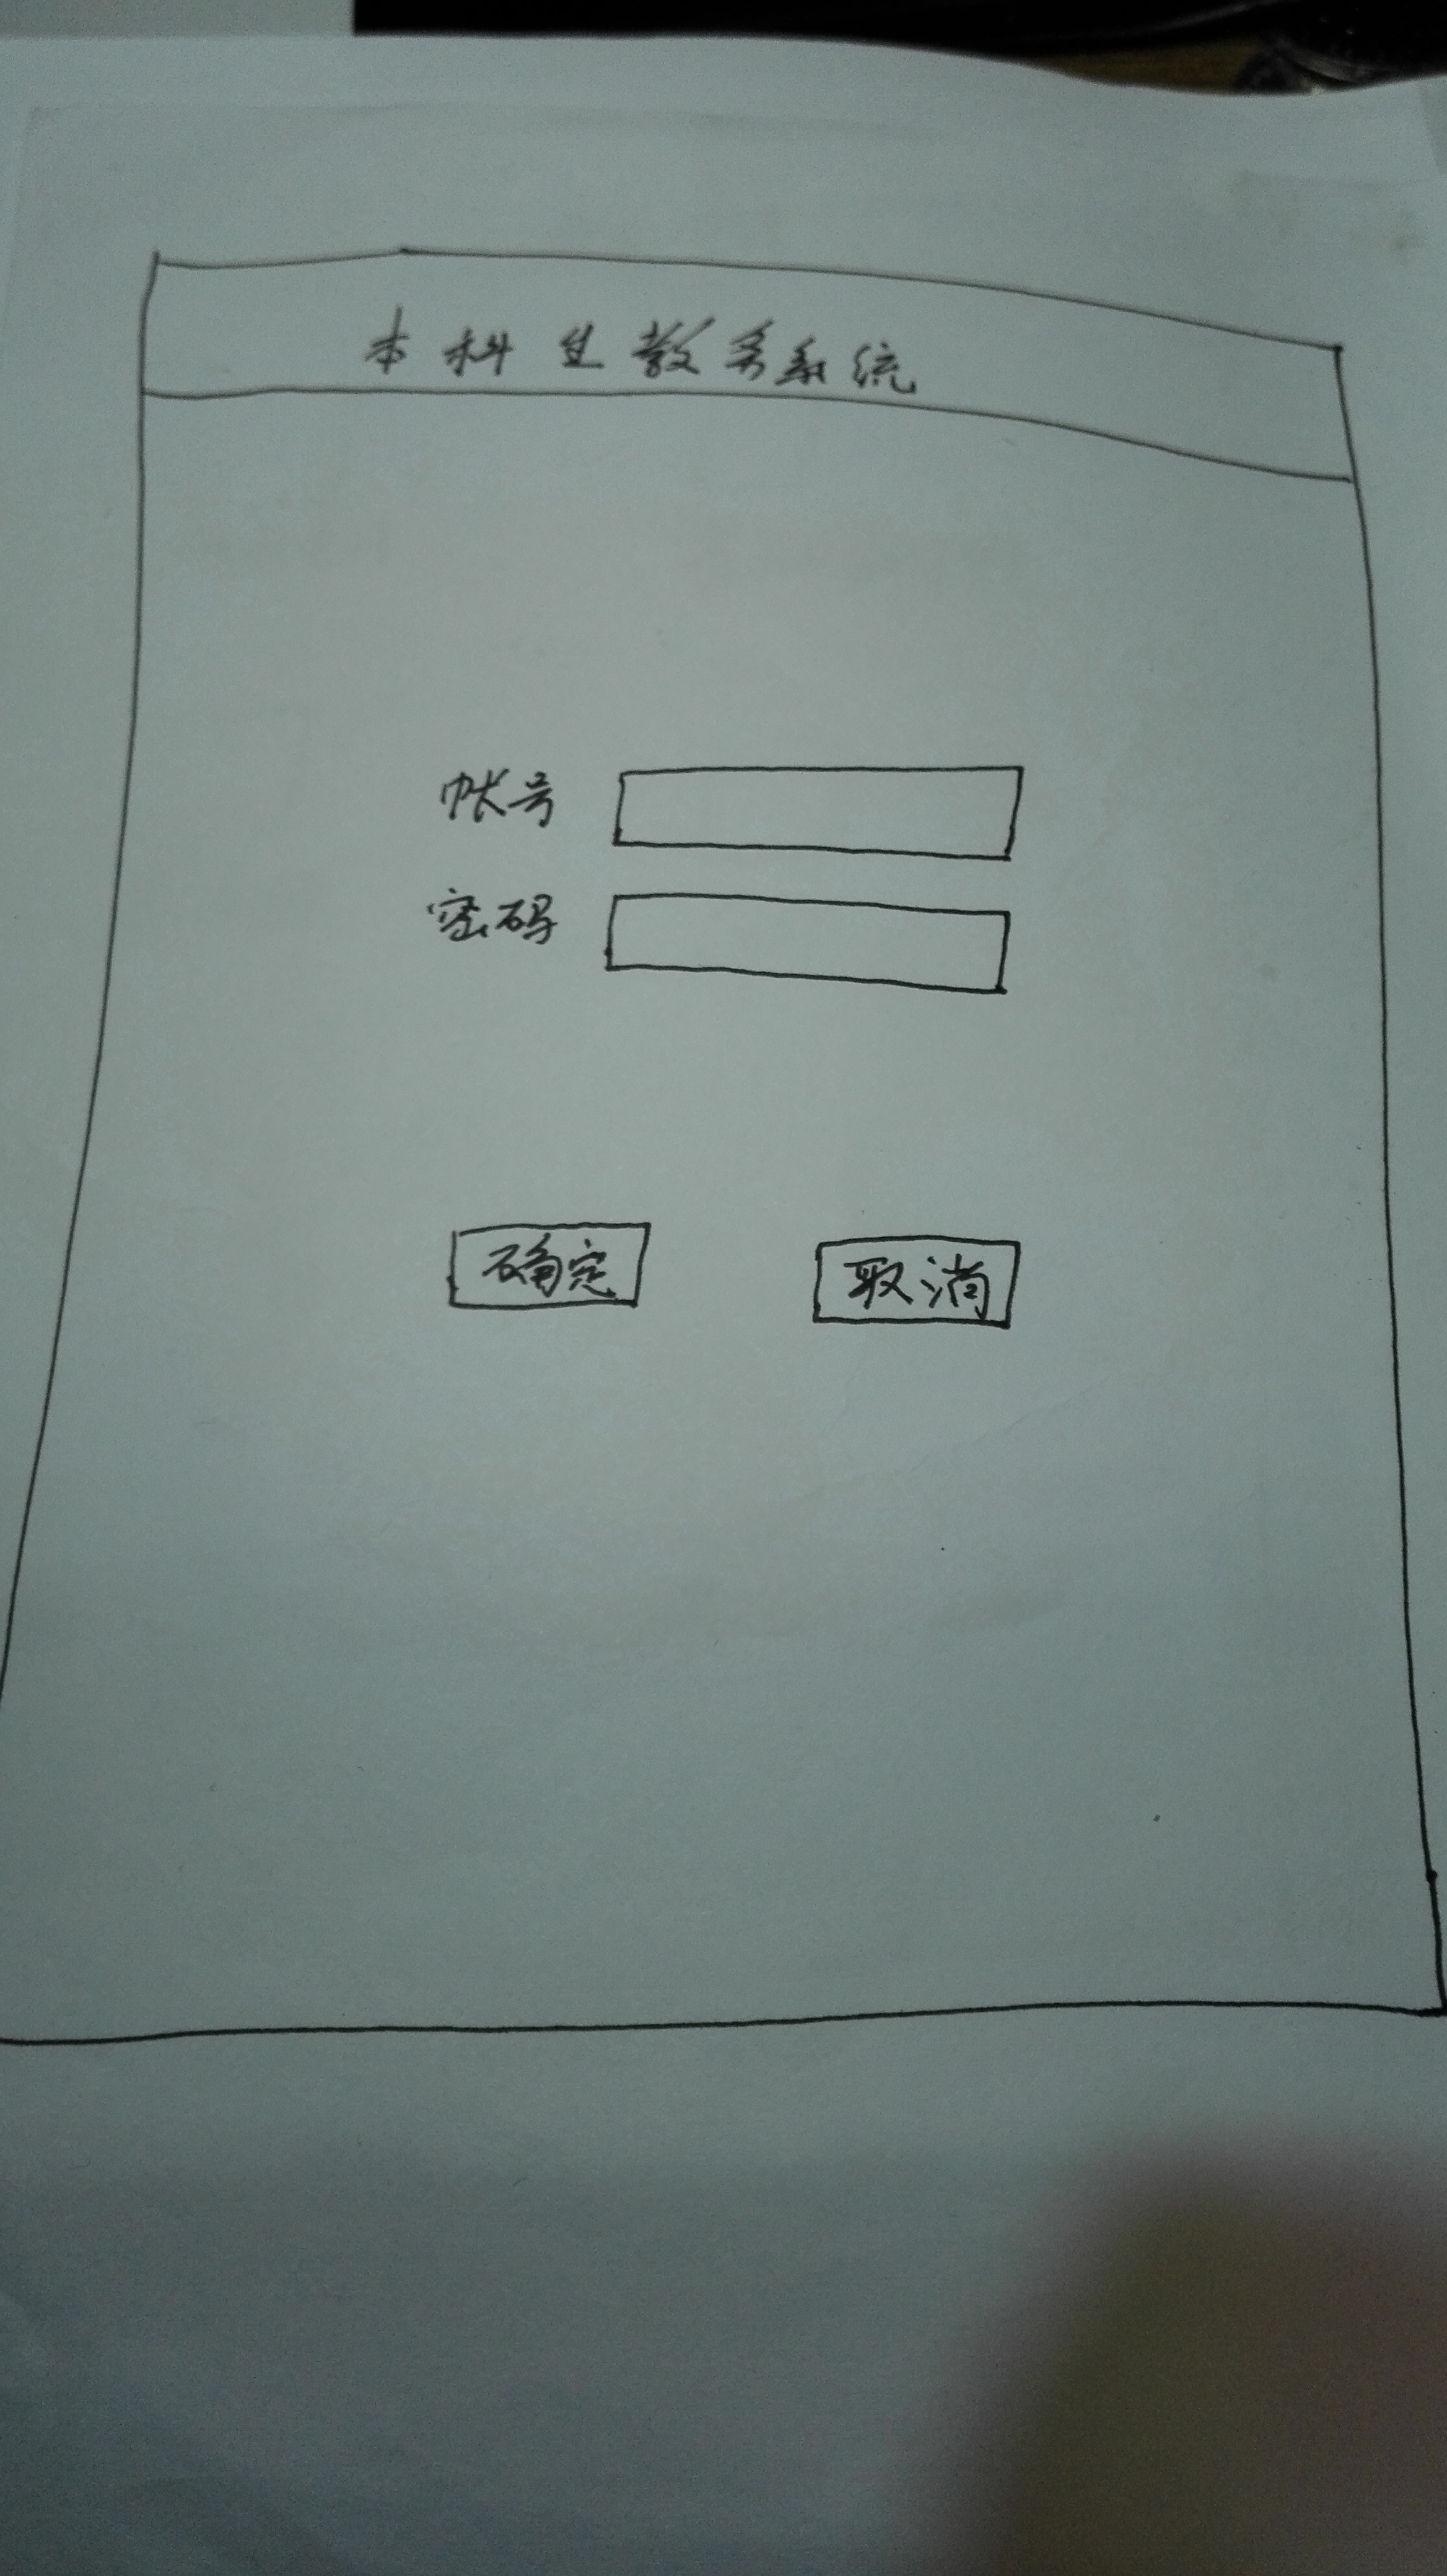 本科生教务系统
帐号
密码
确定
取消